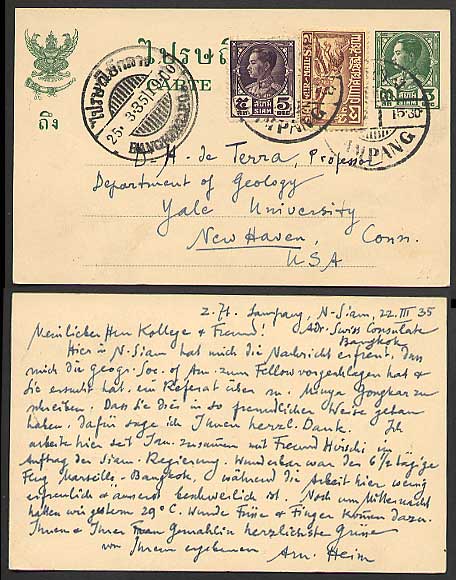 ไปรษณี
CARTE
ถึง
25·3·35
BANGKOK
5
SIAM
LAMPANG
15·30
LAMPANG
Dr H. de Terra, Professor
Department of Geology
Yale University
New Haven, Conn.
USA
z. Zt. Lampang, N-Siam, 22. III 35
Adr. Swiss Consulate
Bangkok
Mein lieber Herr Kollege & Freund!
Hier in N-Siam hat mich die Nachricht erfreut, dass
mich die geogr. Soc. of Am. zum Fellow vorgeschlagen hat &
Sie ersucht hat, ein Referat über m. Minya Gongkar zu
schreiben. Dass Sie dies in so freundlicher Weise getan
haben, dafür sage ich Ihnen herzl. Dank. Ich
arbeite hier seit Jan. zusammen mit Freund Hirschi im
Auftrag der Siam. Regierung. Wunderbar war der 6½ tägige
Flug Marseille-Bangkok, während die Arbeit hier wenig
erfreulich & äusserst beschwerlich ist. Noch um Mitternacht
hatten wir gestern 29°C. Wunde Füsse & Finger kommen dazu.
Ihnen & Ihrer Frau Gemahlin herzlichste Grüsse
von Ihrem ergebenen
Arn. Heim